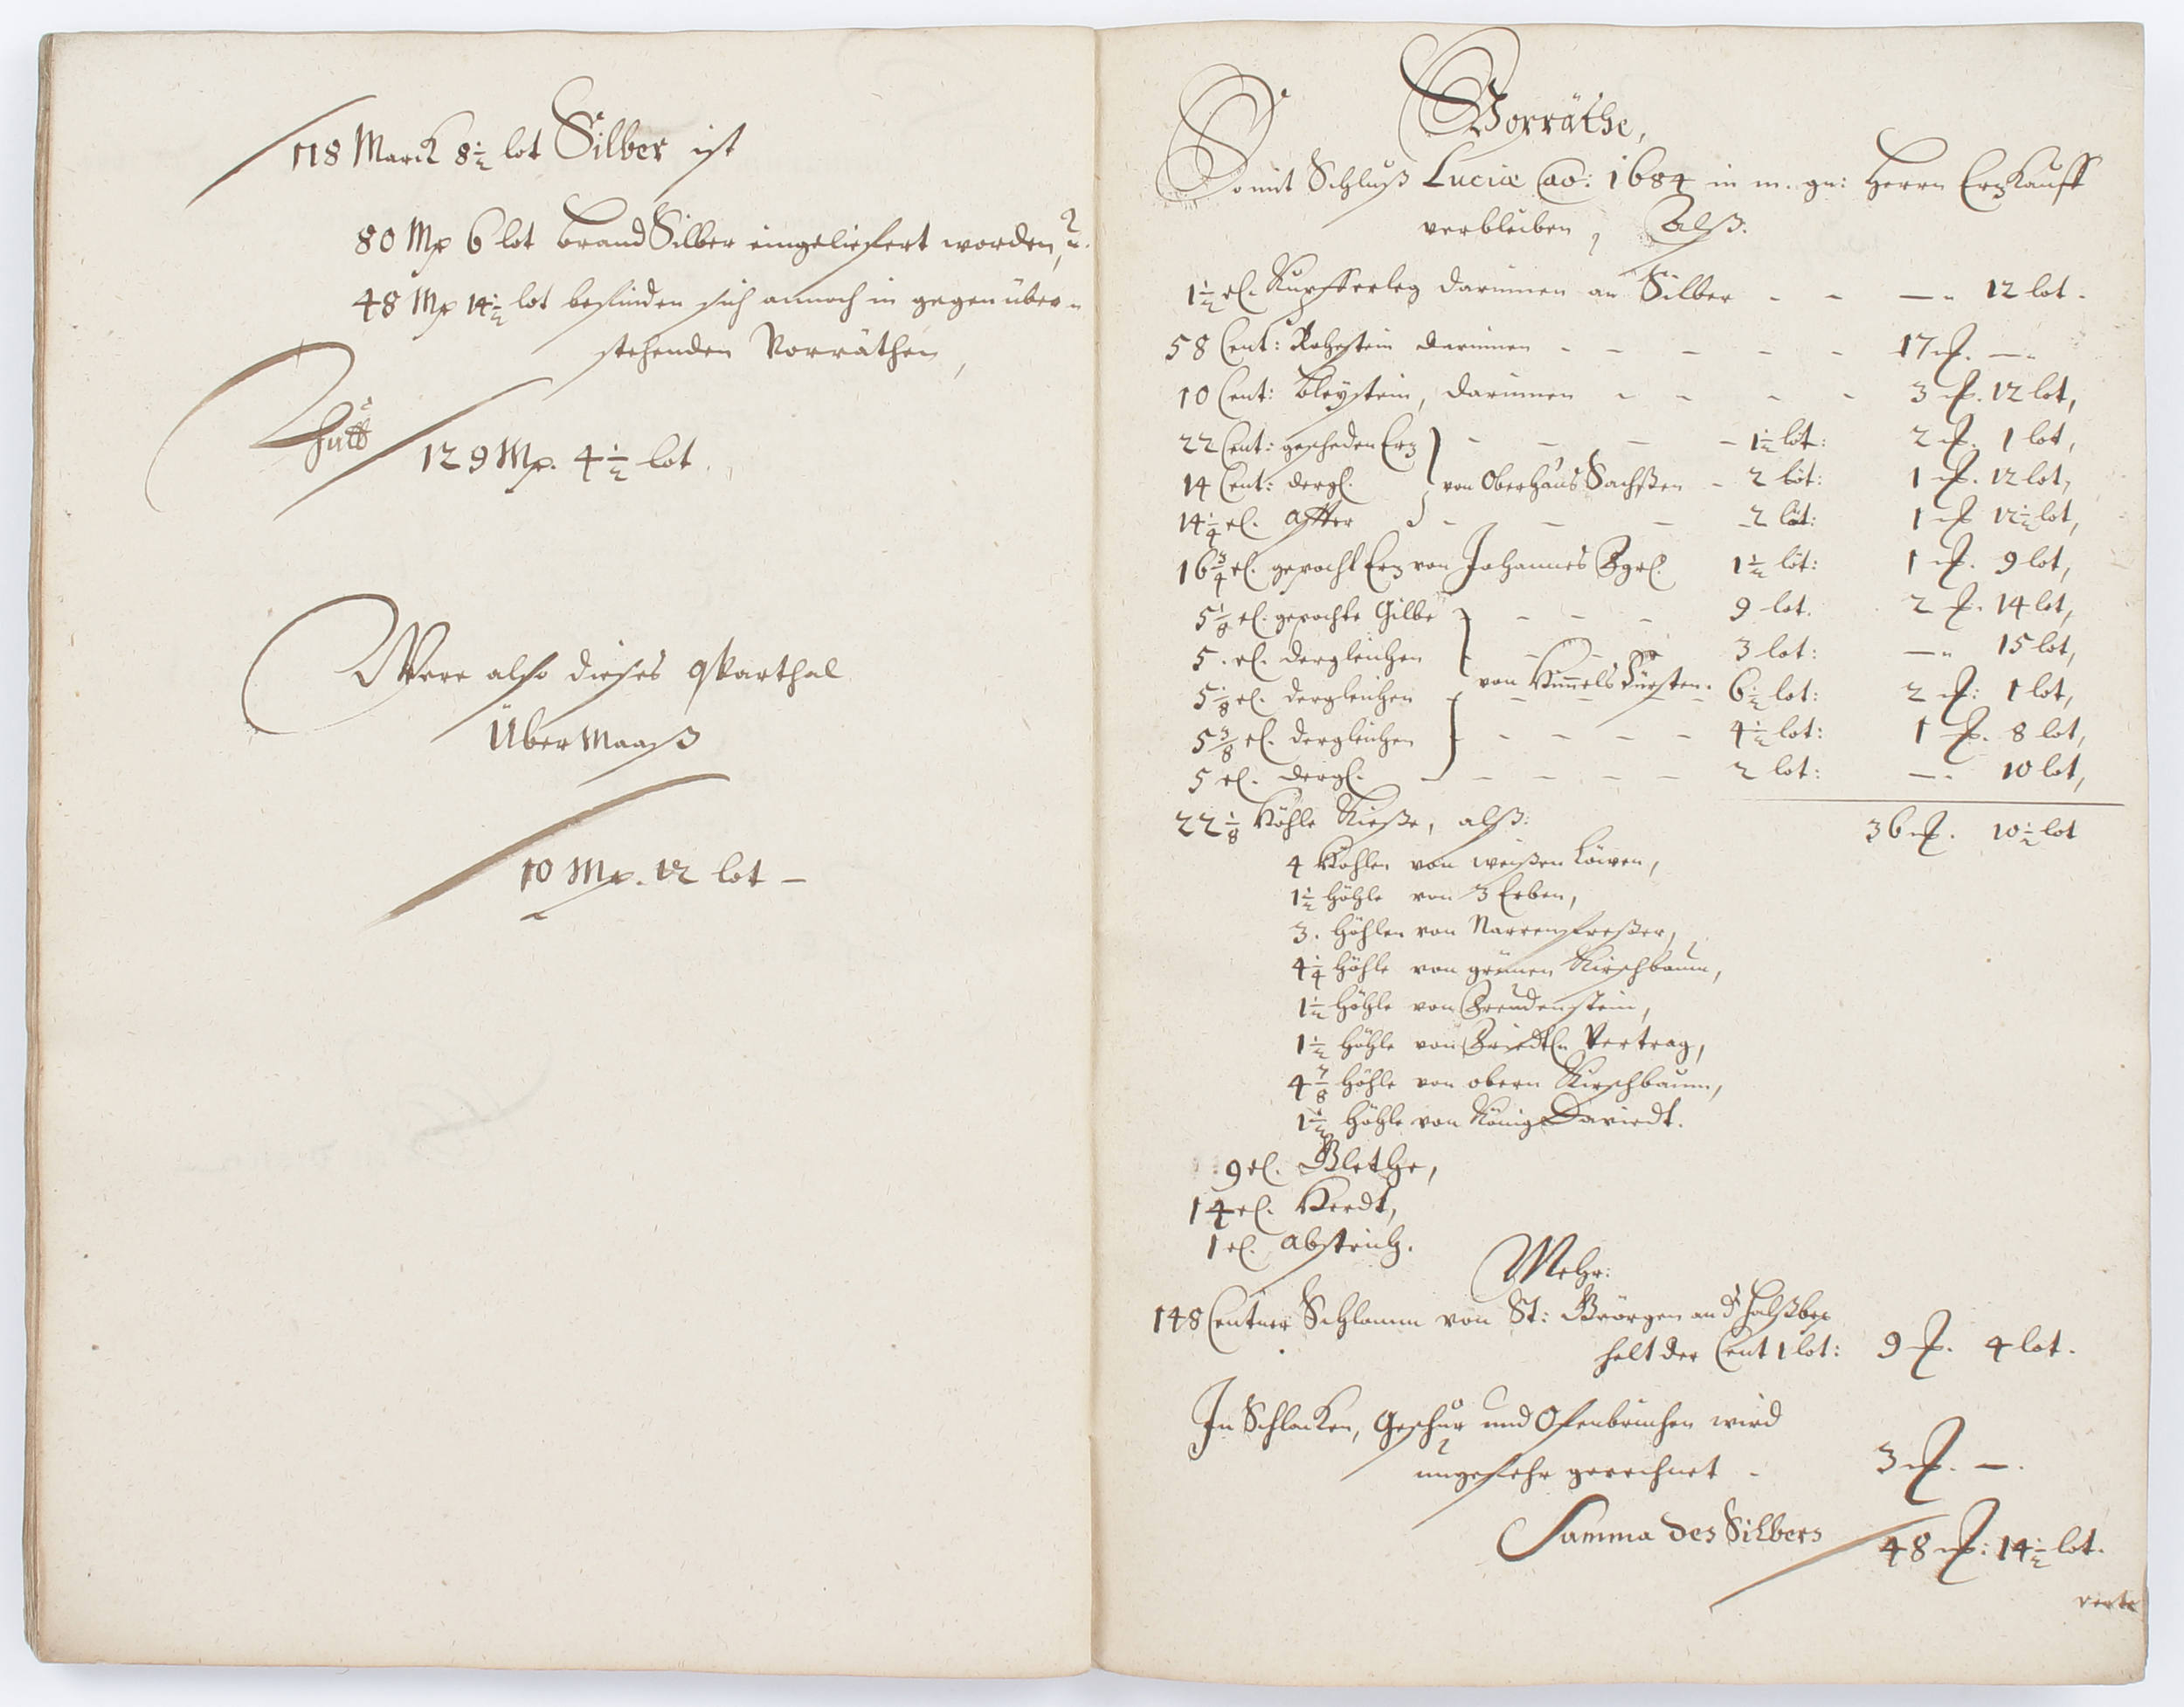 118 Marck 8½ lot Silber ist
80 Mk 6 lot brand Silber eingeliefert worden, u.
48 Mk 14½ lot befinden sich annoch in gegen über-
stehenden Vorräthen,
Thutt
129 Mk. 4½ lot.
Were also dieses qvarthal
Über Maaß
10 Mk. 12 lot –
Vorräthe,
So mit Schluß Luciæ ao: 1684 in m. gn: Herrn Erz Kauff
verbleiben, Alß.
1½ cl. Kupfferleg darinnen an Silber - - —„ 12 lot.
58 Cent: Rohstein darinnen - - - - - 17 mk. —„
10 Cent: bleystein, darinnen - - - - 3 mk. 12 lot,
22 Cent: gescheden Erz - - - - 1½ löt: 2 mk. 1 lot,
14 Cent: dergl. von Oberhaus Sachßen - 2 löt: 1 mk. 12 lot,
14¼ cl. affter - - - 2 löt: 1 mk 12½ lot,
16¾ cl. gepocht Erz von Johannes Bgrl. 1½ löt: 1 mk. 9 lot,
5⅛ cl. gepochte Gilbe - - - 9 lot. 2 mk. 14 lot,
5. cl. dergleichen - - - 3 lot: —„ 15 lot,
von Himmels Fürsten.
5⅛ cl. dergleichen - - - - 6½ lot: 2 mk: 1 lot,
5⅜ cl. dergleichen - - - - - 4½ lot: 1 mk. 8 lot,
5 cl. dergl. - - - - - 2 lot: —. 10 lot,
22⅛ Höhle Kieße, alß: 36 mk. 10½ lot
4 Höhlen von weißen Löwen,
1½ Höhle von 3 Erben,
3. Höhlen von Narrenfreßer,
4¼ Höhle von grünen Kirschbaum,
1½ Höhle von Freudenstein,
1½ Höhle von Friedtln Vertrag,
4⅞ Höhle von obern Kirschbaum,
1½ Höhle von König Daviedt.
9 cl. Glethe,
14 cl. Herdt,
1 cl. Abstrich.
Mehr:
148 Centner Schlamm von St: Geörgen an d Halßbrg
helt der Cent 1 lot: 9 mk. 4 lot.
In Schlacken, Geschur und Ofenbrüchen wird
ungefehr gerechnet - 3 mk. —.
Summa des Silbers 48 mk: 14½ lot.
verte